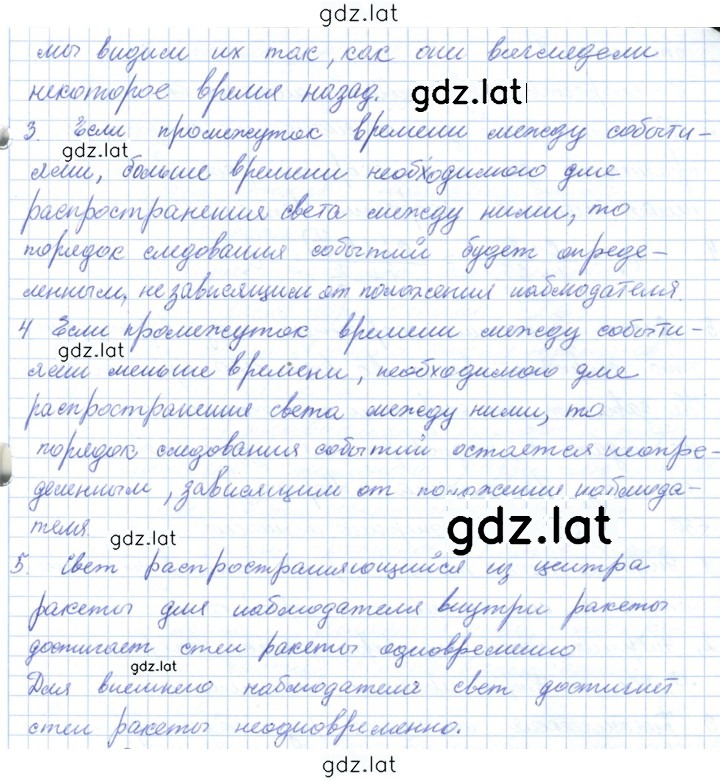 gdz.lat
мы видим их так, как они выглядели
некоторое время назад. gdz.lat
3. Если промежуток времени между событи-
gdz.lat
ями, больше времени необходимого для
распространения света между ними, то
порядок следования событий будет опреде-
ленным, не зависящим от положения наблюдателя.
4 Если промежуток времени между событи-
gdz.lat
ями меньше времени, необходимого для
распространения света между ними, то
порядок следования событий остается неопре-
деленным, зависящим от положения наблюда-
теля.
gdz.lat gdz.lat
5. Свет распространяющийся из центра
ракеты для наблюдателя внутри ракеты
достигает стен ракеты одновременно
gdz.lat
Для внешнего наблюдателя свет достигнет
стен ракеты неодновременно.
gdz.lat